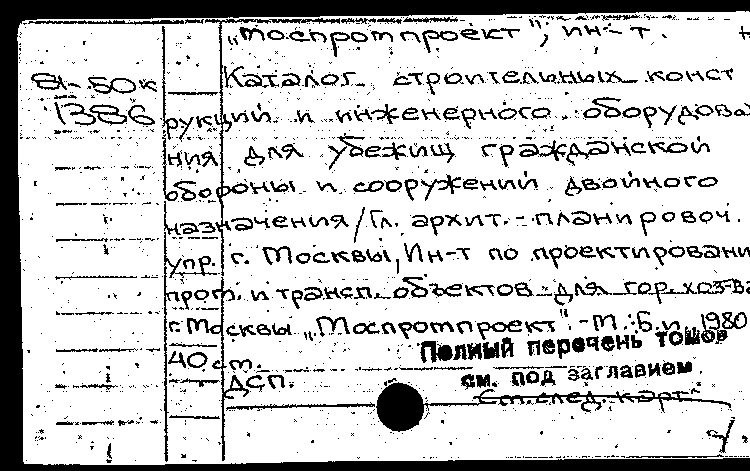 „Моспромпроект“, ин-т.
81-50к
1386
Каталог строительных конст
рукций и инженерного оборудова
ния для убежищ гражданской
обороны и сооружений двойного
назначения / Гл. архит.-планировоч.
упр. г. Москвы, Ин-т по проектировани
пром. и трансп. объектов для гор. хоз-ва
г. Москвы „Моспромпроект“. - М. : Б.и., 1980
40 см.
ДСП.
Полный перечень томов
см. под заглавием.
См. след. карт.